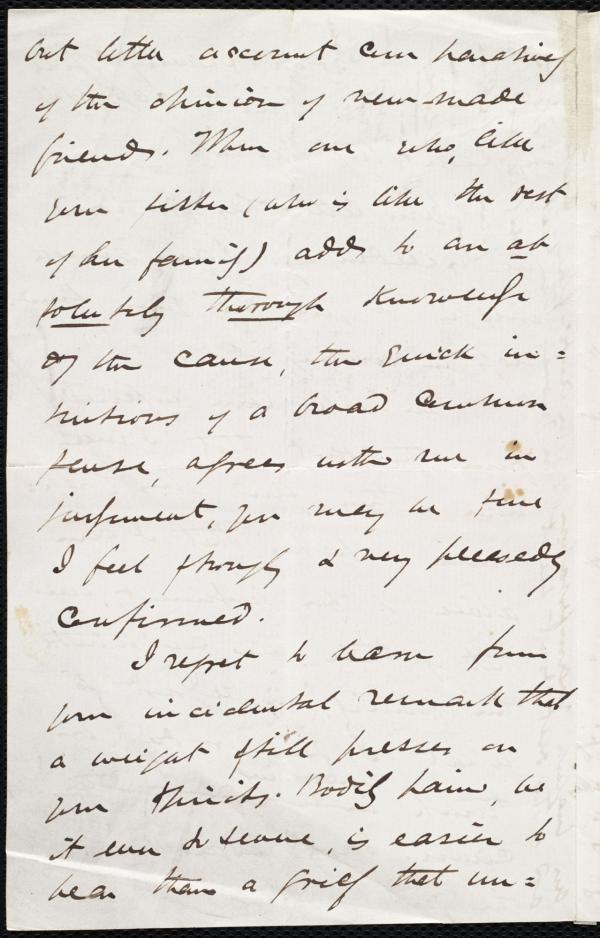 but little account comparatively
of the opinion of new-made
friends. When one who, like
your sister (who is like the rest
of her family) adds to an ab
solutely thorough knowledge
of the cause, the quick in=
tuitions of a broad common
sense, agrees with me in
judgment, you may be sure
I feel strongly & very pleasedly
confirmed.
I regret to learn from
your incidental remark that
a weight still presses on
your spirits. Bodily pain, be
it ever so severe, is easier to
bear than a grief that un=